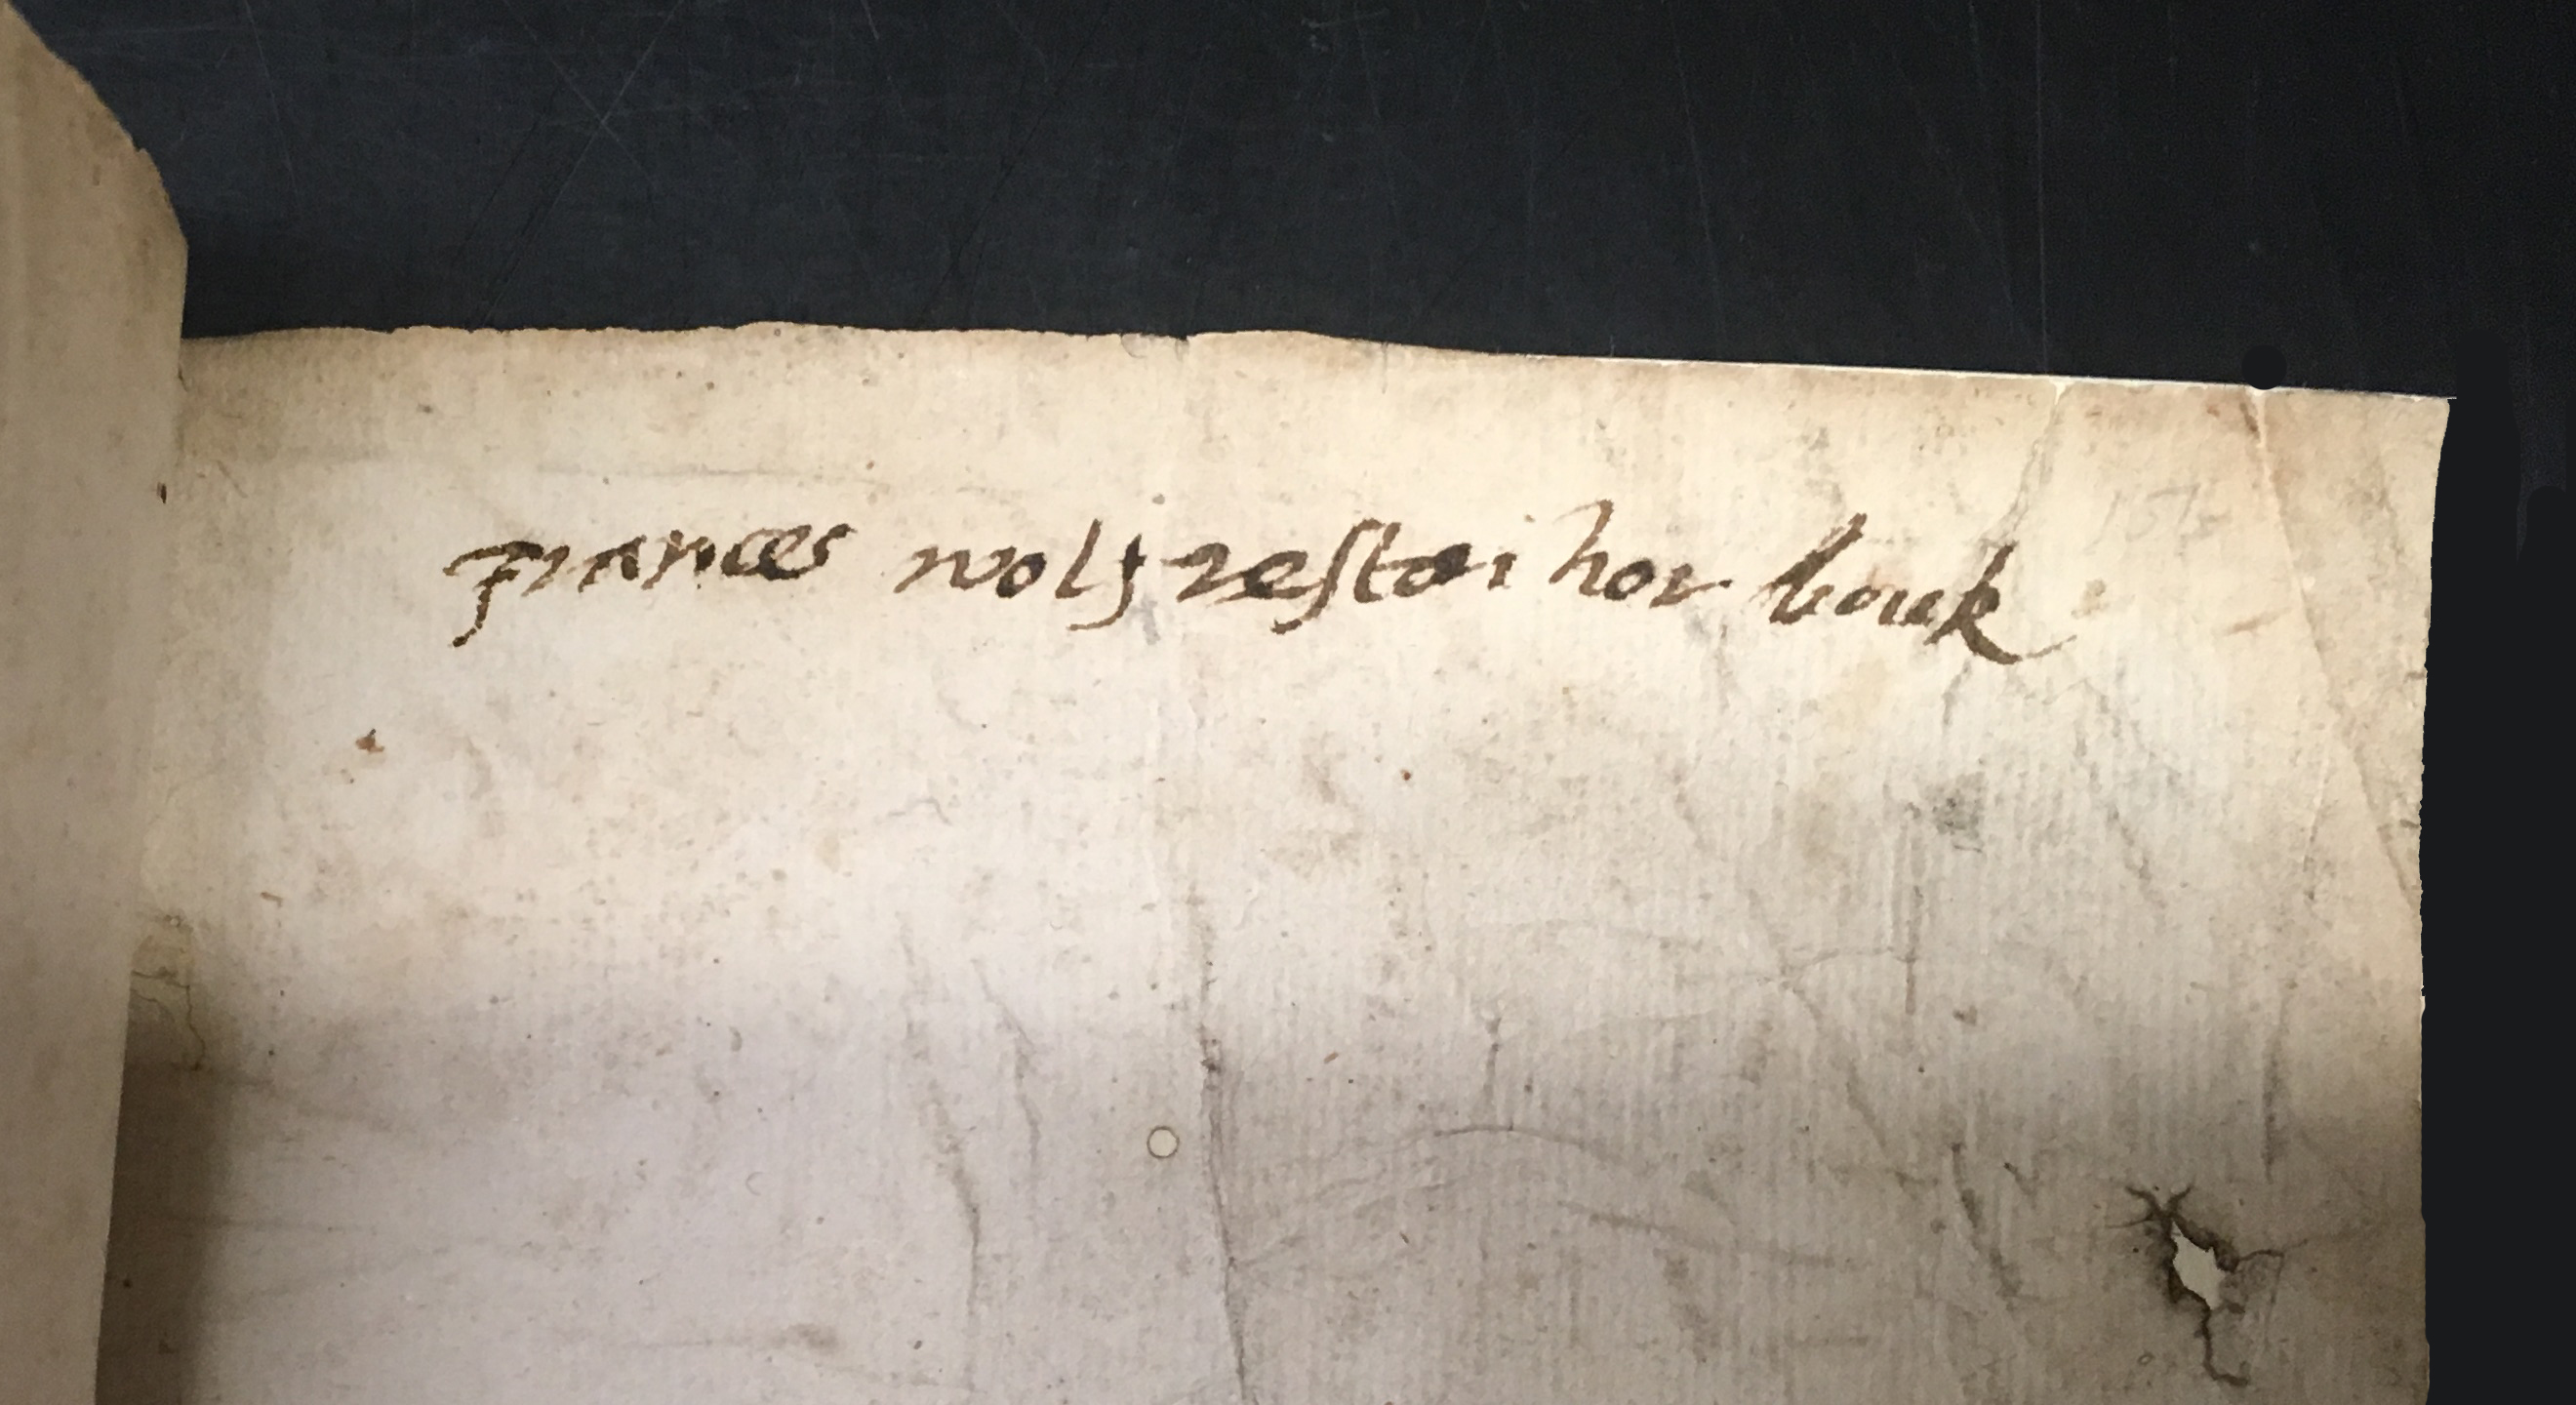 frances wolfreston hor bouk